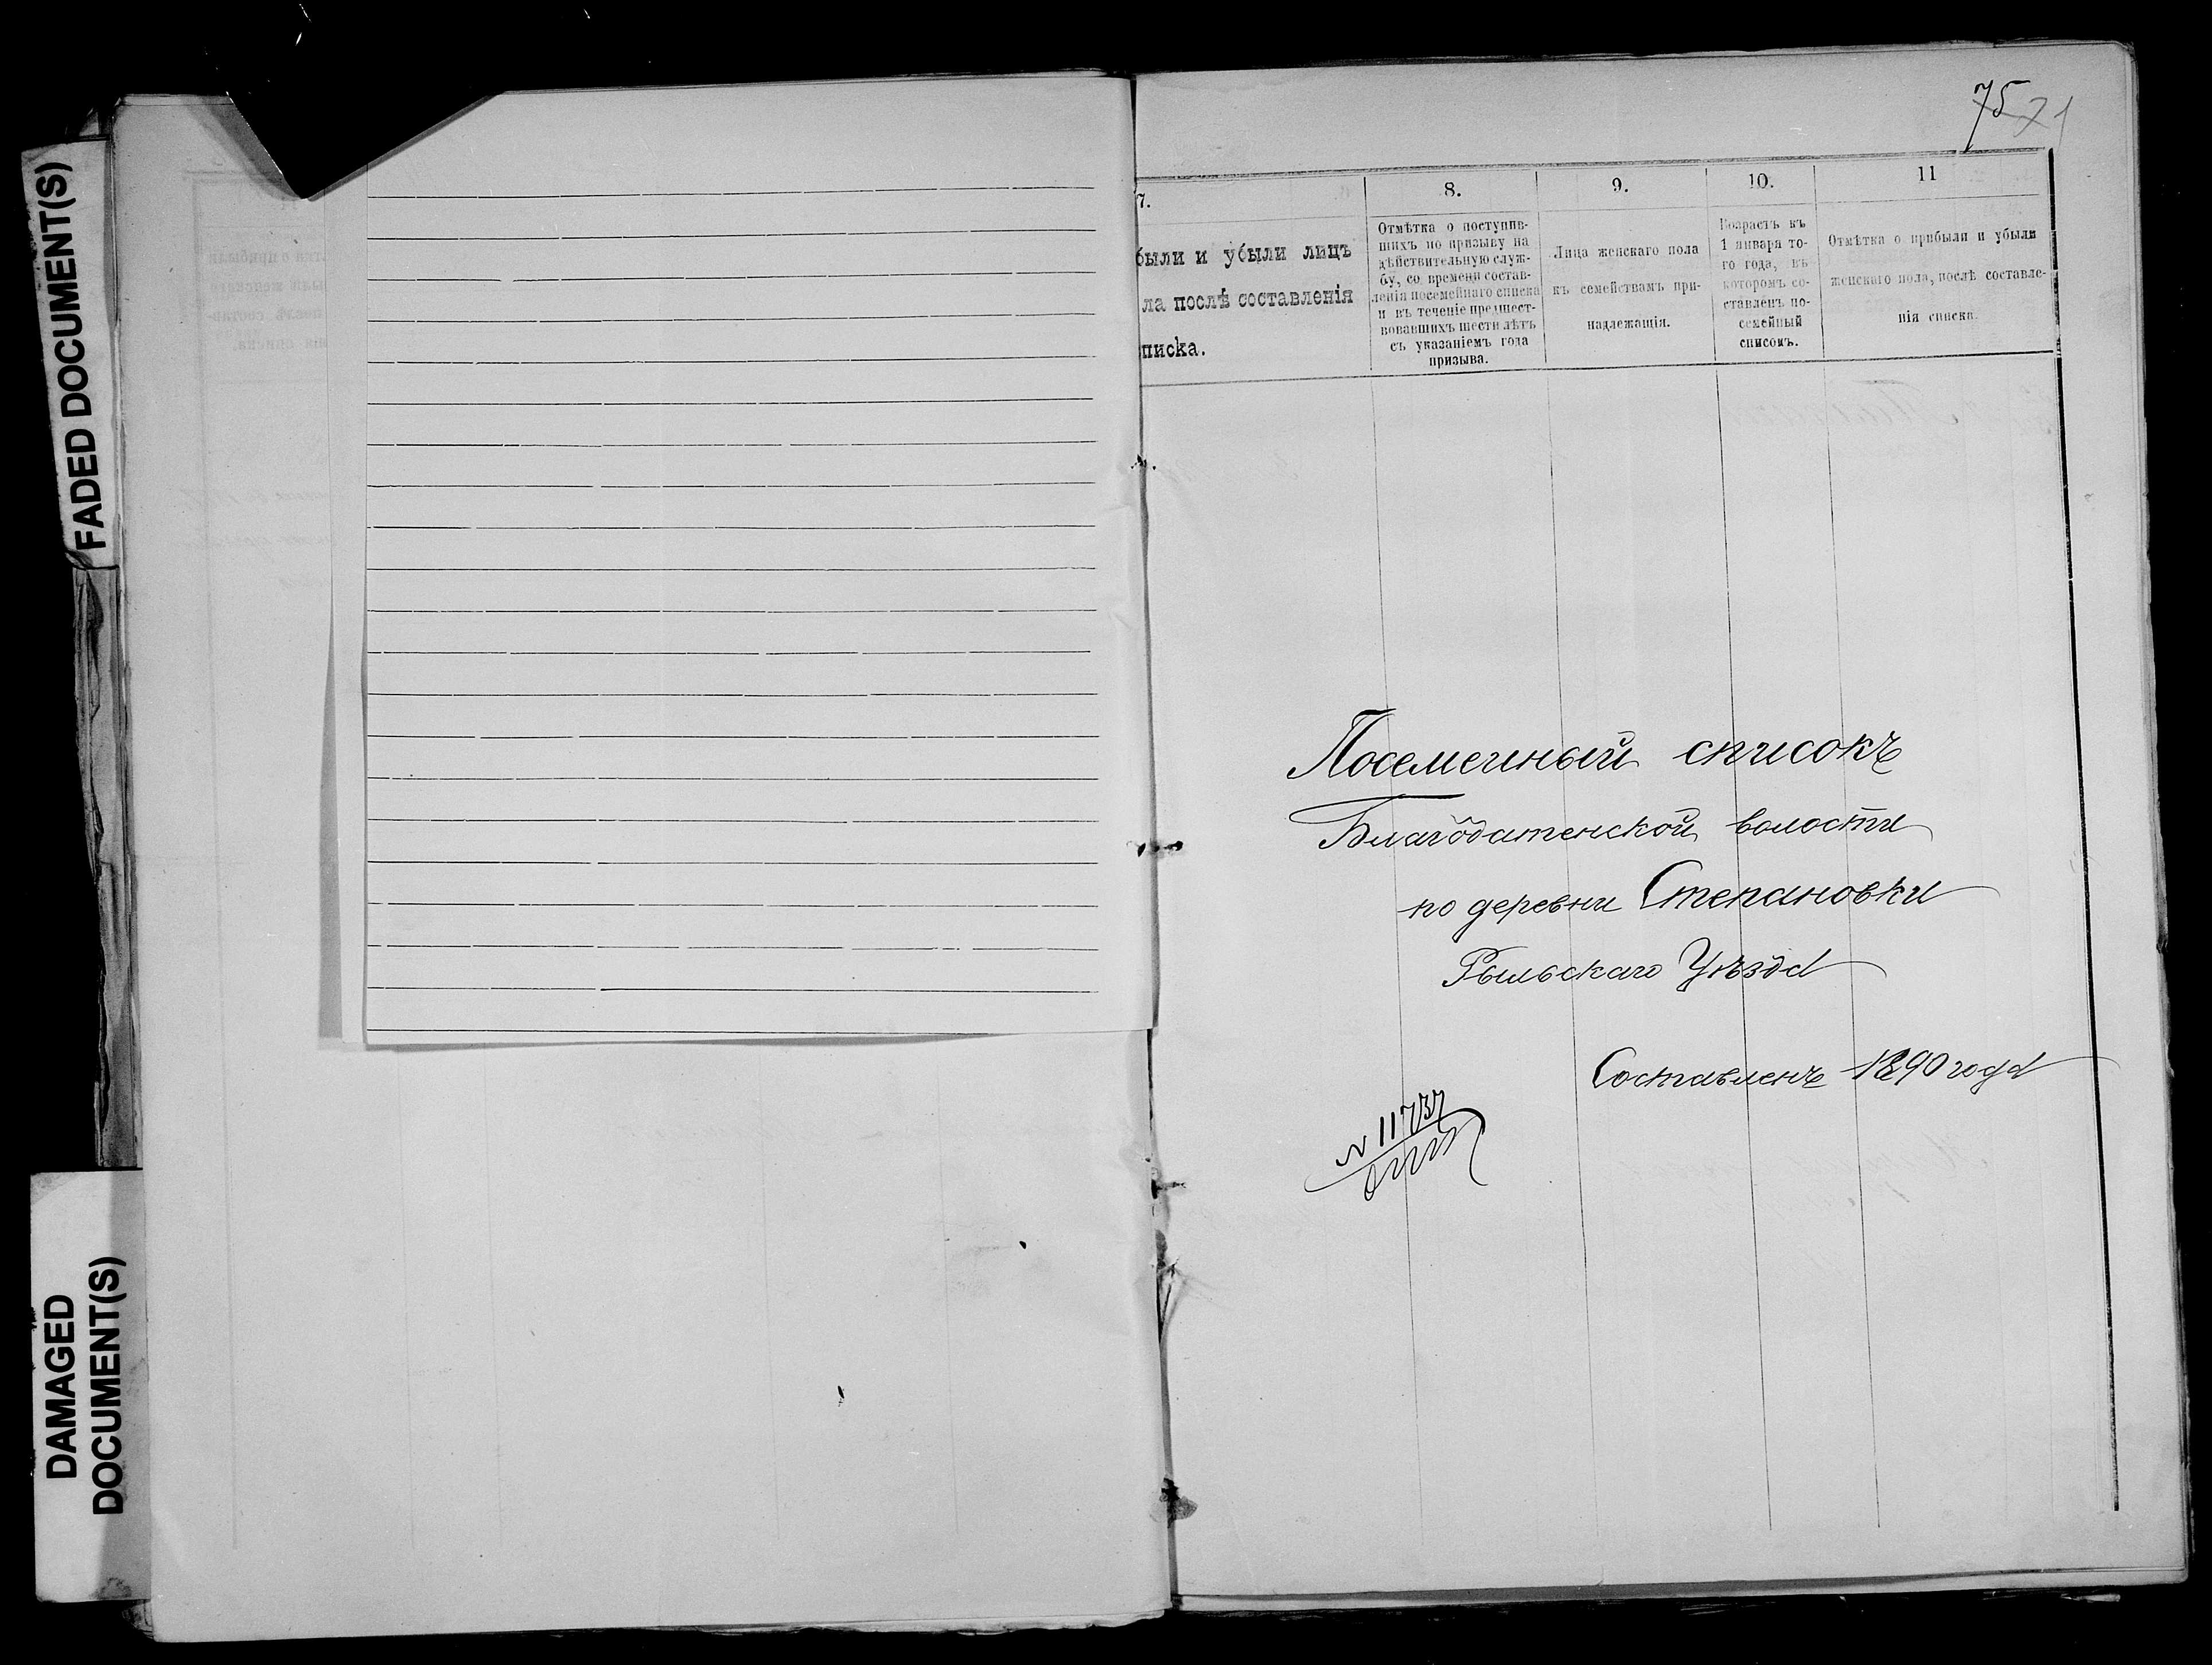 FADED DOCUMENT(S)
DAMAGED
DOCUMENT(S)
75 71
7.
были и убыли лицъ
ла послѣ составленія
писка.
8.
Отмѣтка о поступив-
шихъ по призыву на
дѣйствительную служ-
бу, со времени состав-
ленія посемейнаго списка
и въ теченіе предшест-
вовавшихъ шести лѣтъ
съ указаніемъ года
призыва.
9.
Лица женскаго пола
къ семействамъ при-
надлежащія.
10.
Возрастъ къ
1 января то-
го года, въ
которомъ со-
ставленъ по-
семейный
списокъ.
11
Отмѣтка о прибыли и убыли
женскаго пола, послѣ составле-
нія списка.
Посемейный списокъ
Благодатенской волости
по деревни Степановки
Рыльскаго Уѣзда
Составленъ 1890 года
№ 11737